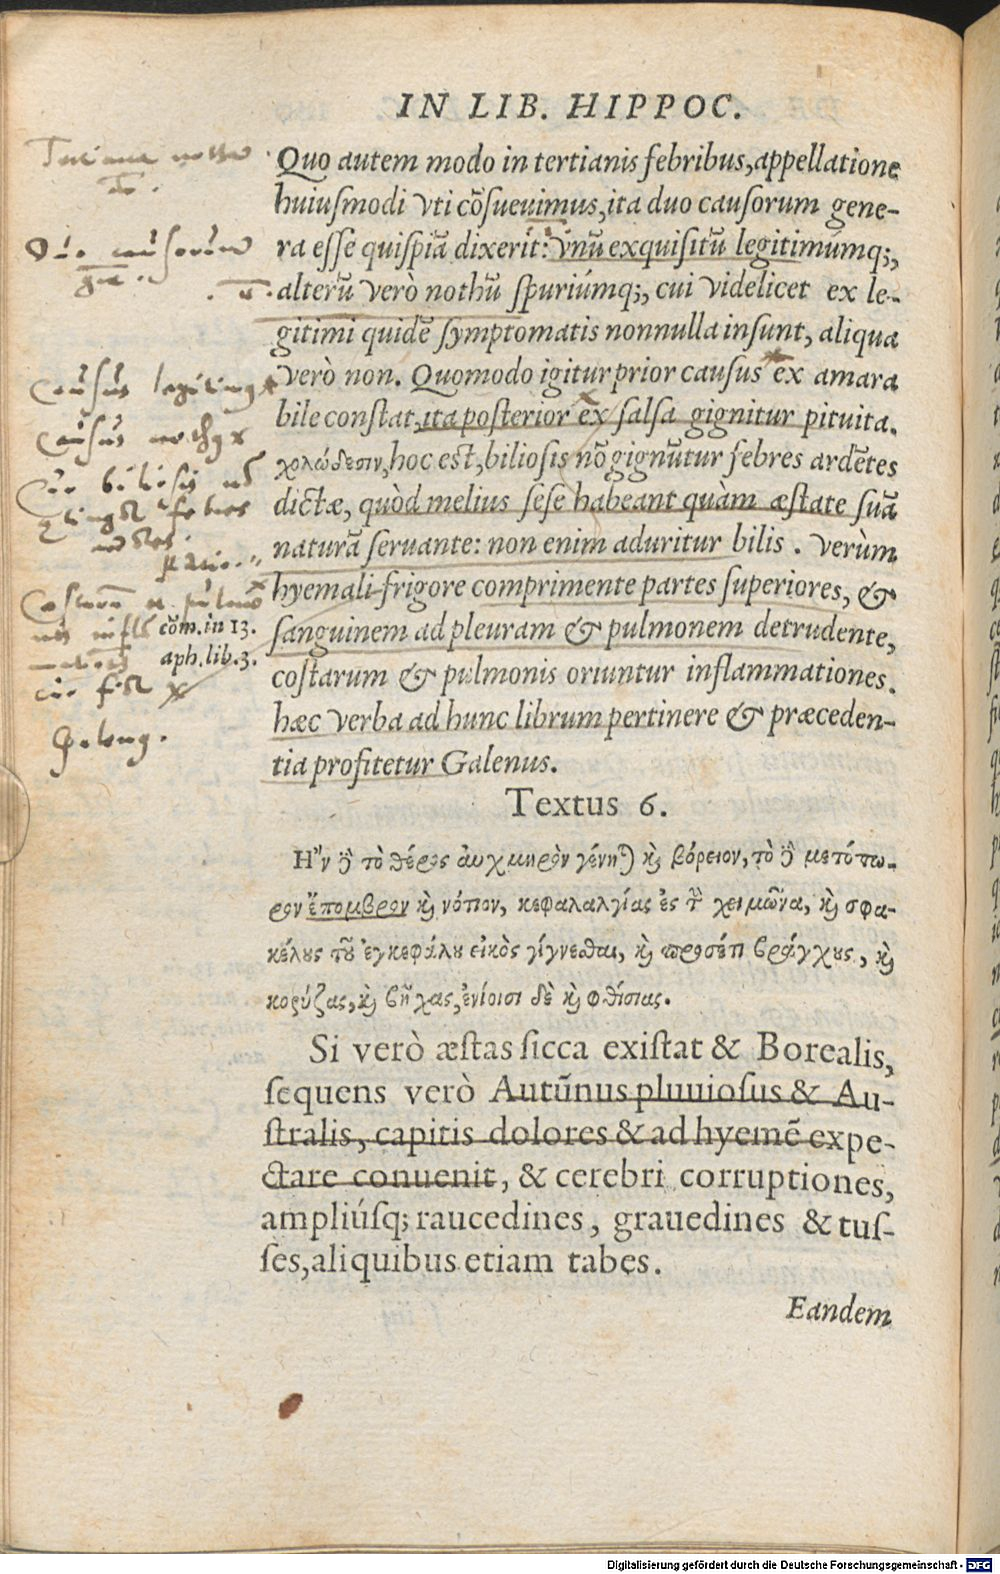 IN LIB. HIPPOC.
Quo autem modo in tertianis febribus, appellatione
huiusmodi vti cõsueuimus, ita duo causorum gene-
ra esse quispiã dixerit: vnũ exquisitũ legitimúmq;,
alterũ verò nothũ spuriúmq;, cui videlicet ex le-
gitimi quidẽ symptomatis nonnulla insunt, aliqua
verò non. Quomodo igitur prior causus ex amara
bile constat, ita posterior ex salsa gignitur pituita.
χολώδεσιν, hoc est, biliosis nõ gignũtur febres ardẽtes
dictæ, quòd melius sese habeant quàm æstate suã
naturã seruante: non enim aduritur bilis. Verùm
hyemali frigore comprimente partes superiores, &
sanguinem ad pleuram & pulmonem detrudente,
costarum & pulmonis oriuntur inflammationes.
hæc verba ad hunc librum pertinere & præceden-
tia profitetur Galenus.
causus legitimq
causus
cur biliosis nõ
febres
cõm. in 13.
aph. lib. 3.
Galenq.
Textus 6.
Ἢν δὲ τὸ θέρος αὐχμηρὸν γένηται καὶ βόρειον, τὸ δὲ μετόπω-
ρον ἔπομβρον καὶ νότιον, κεφαλαλγίας ἐς τὸν χειμῶνα, καὶ σφα-
κέλους τοῦ ἐγκεφάλου εἰκὸς γίγνεσθαι, καὶ προσέτι βράγχους, καὶ
κορύζας, καὶ βῆχας, ἐνίοισι δὲ καὶ φθίσιας.
Si verò æstas sicca existat & Borealis,
sequens verò Autũnus pluuiosus & Au-
stralis, capitis dolores & ad hyemẽ expe-
ctare conuenit, & cerebri corruptiones,
ampliúsq; raucedines, grauedines & tus-
ses, aliquibus etiam tabes.
Eandem
Digitalisierung gefördert durch die Deutsche Forschungsgemeinschaft - DFG